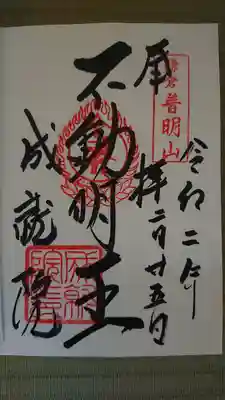 奉拝
鎌倉
普明山
令和二年
二月廿五日
不動明王
成就院